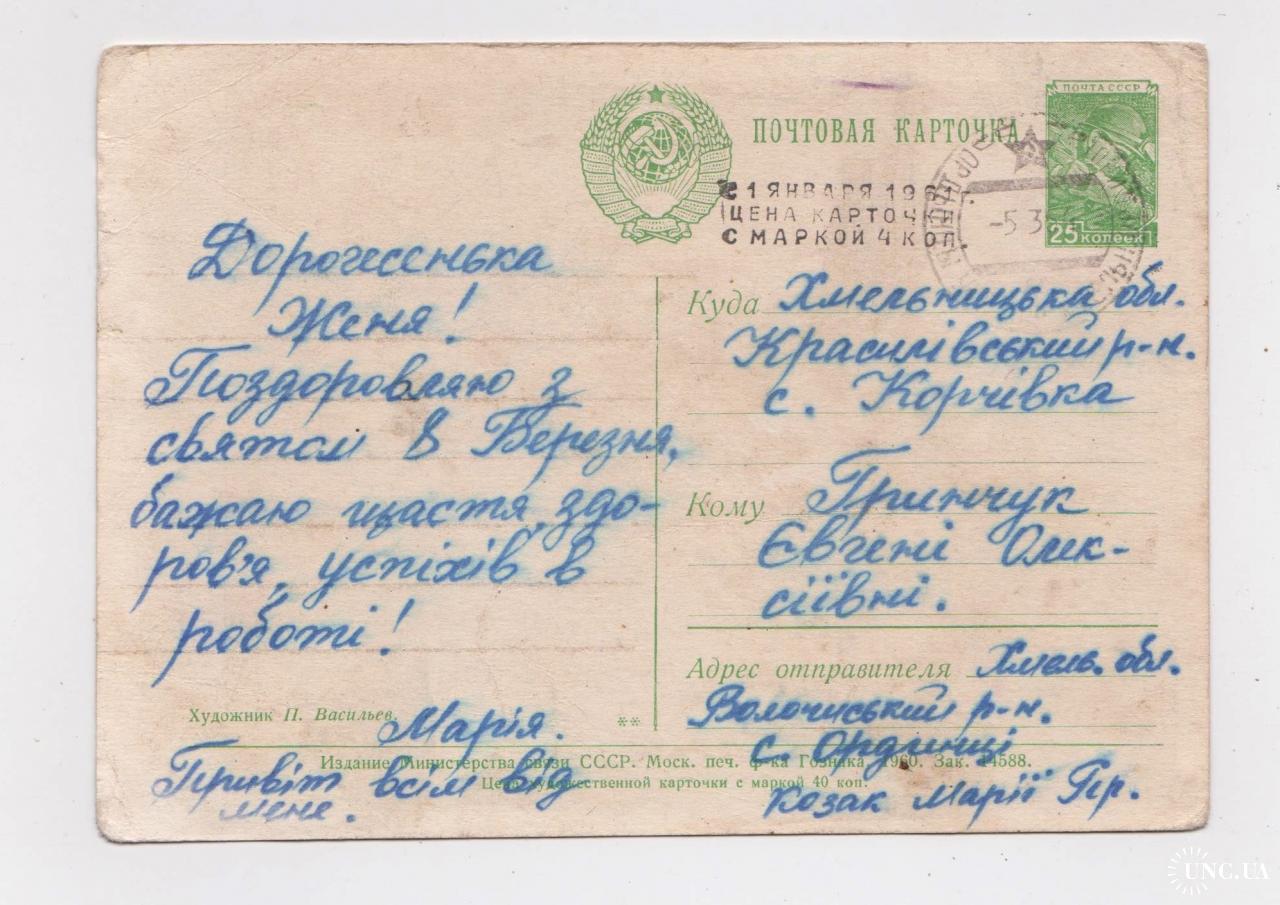 ПОЧТА СССР
ПОЧТОВАЯ КАРТОЧКА
25 КОПЕЕК
С 1 ЯНВАРЯ 1961 Г.
ЦЕНА КАРТОЧКИ
С МАРКОЙ 4 КОП.
-5 3
Дорогесенька
Женя!
Поздоровляю з
святом 8 Березня,
бажаю щастя, здо-
ров'я, успіхів в
роботі!
Марія.
Привіт всім від
мене.
Куда Хмельницька обл.
Красилівський р-н.
с. Корчівка
Кому Гринчук
Євгені Олек-
сіївні.
Адрес отправителя Хмель. обл.
Волочиський р-н.
с. Ординці
Козак Марії Гр.
Художник П. Васильев.
**
Издание Министерства связи СССР. Моск. печ. ф-ка Гознака. 1960. Зак. 14588.
Цена художественной карточки с маркой 40 коп.
UNC.UA